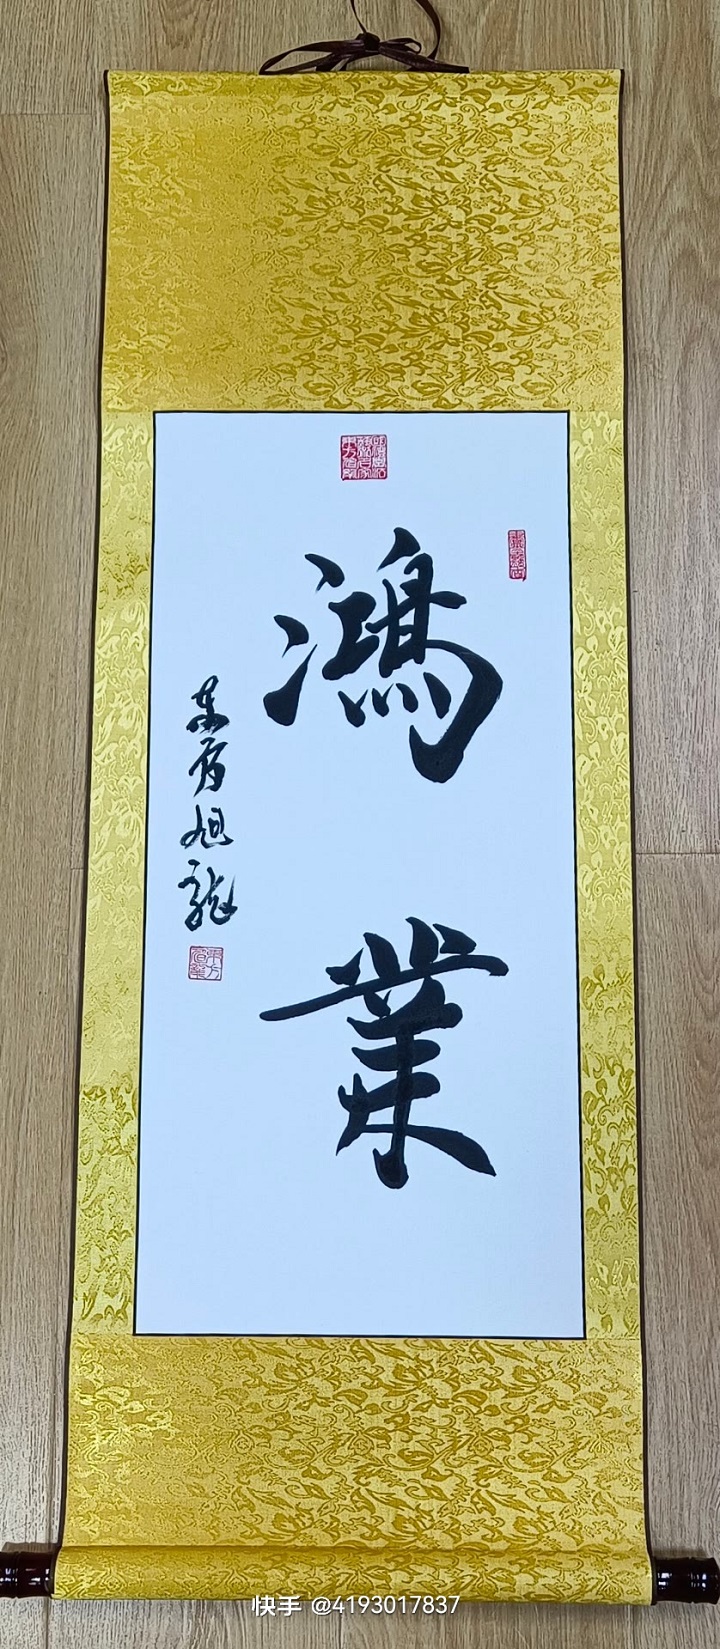 鴻業
东方旭龍
快手 @4193017837